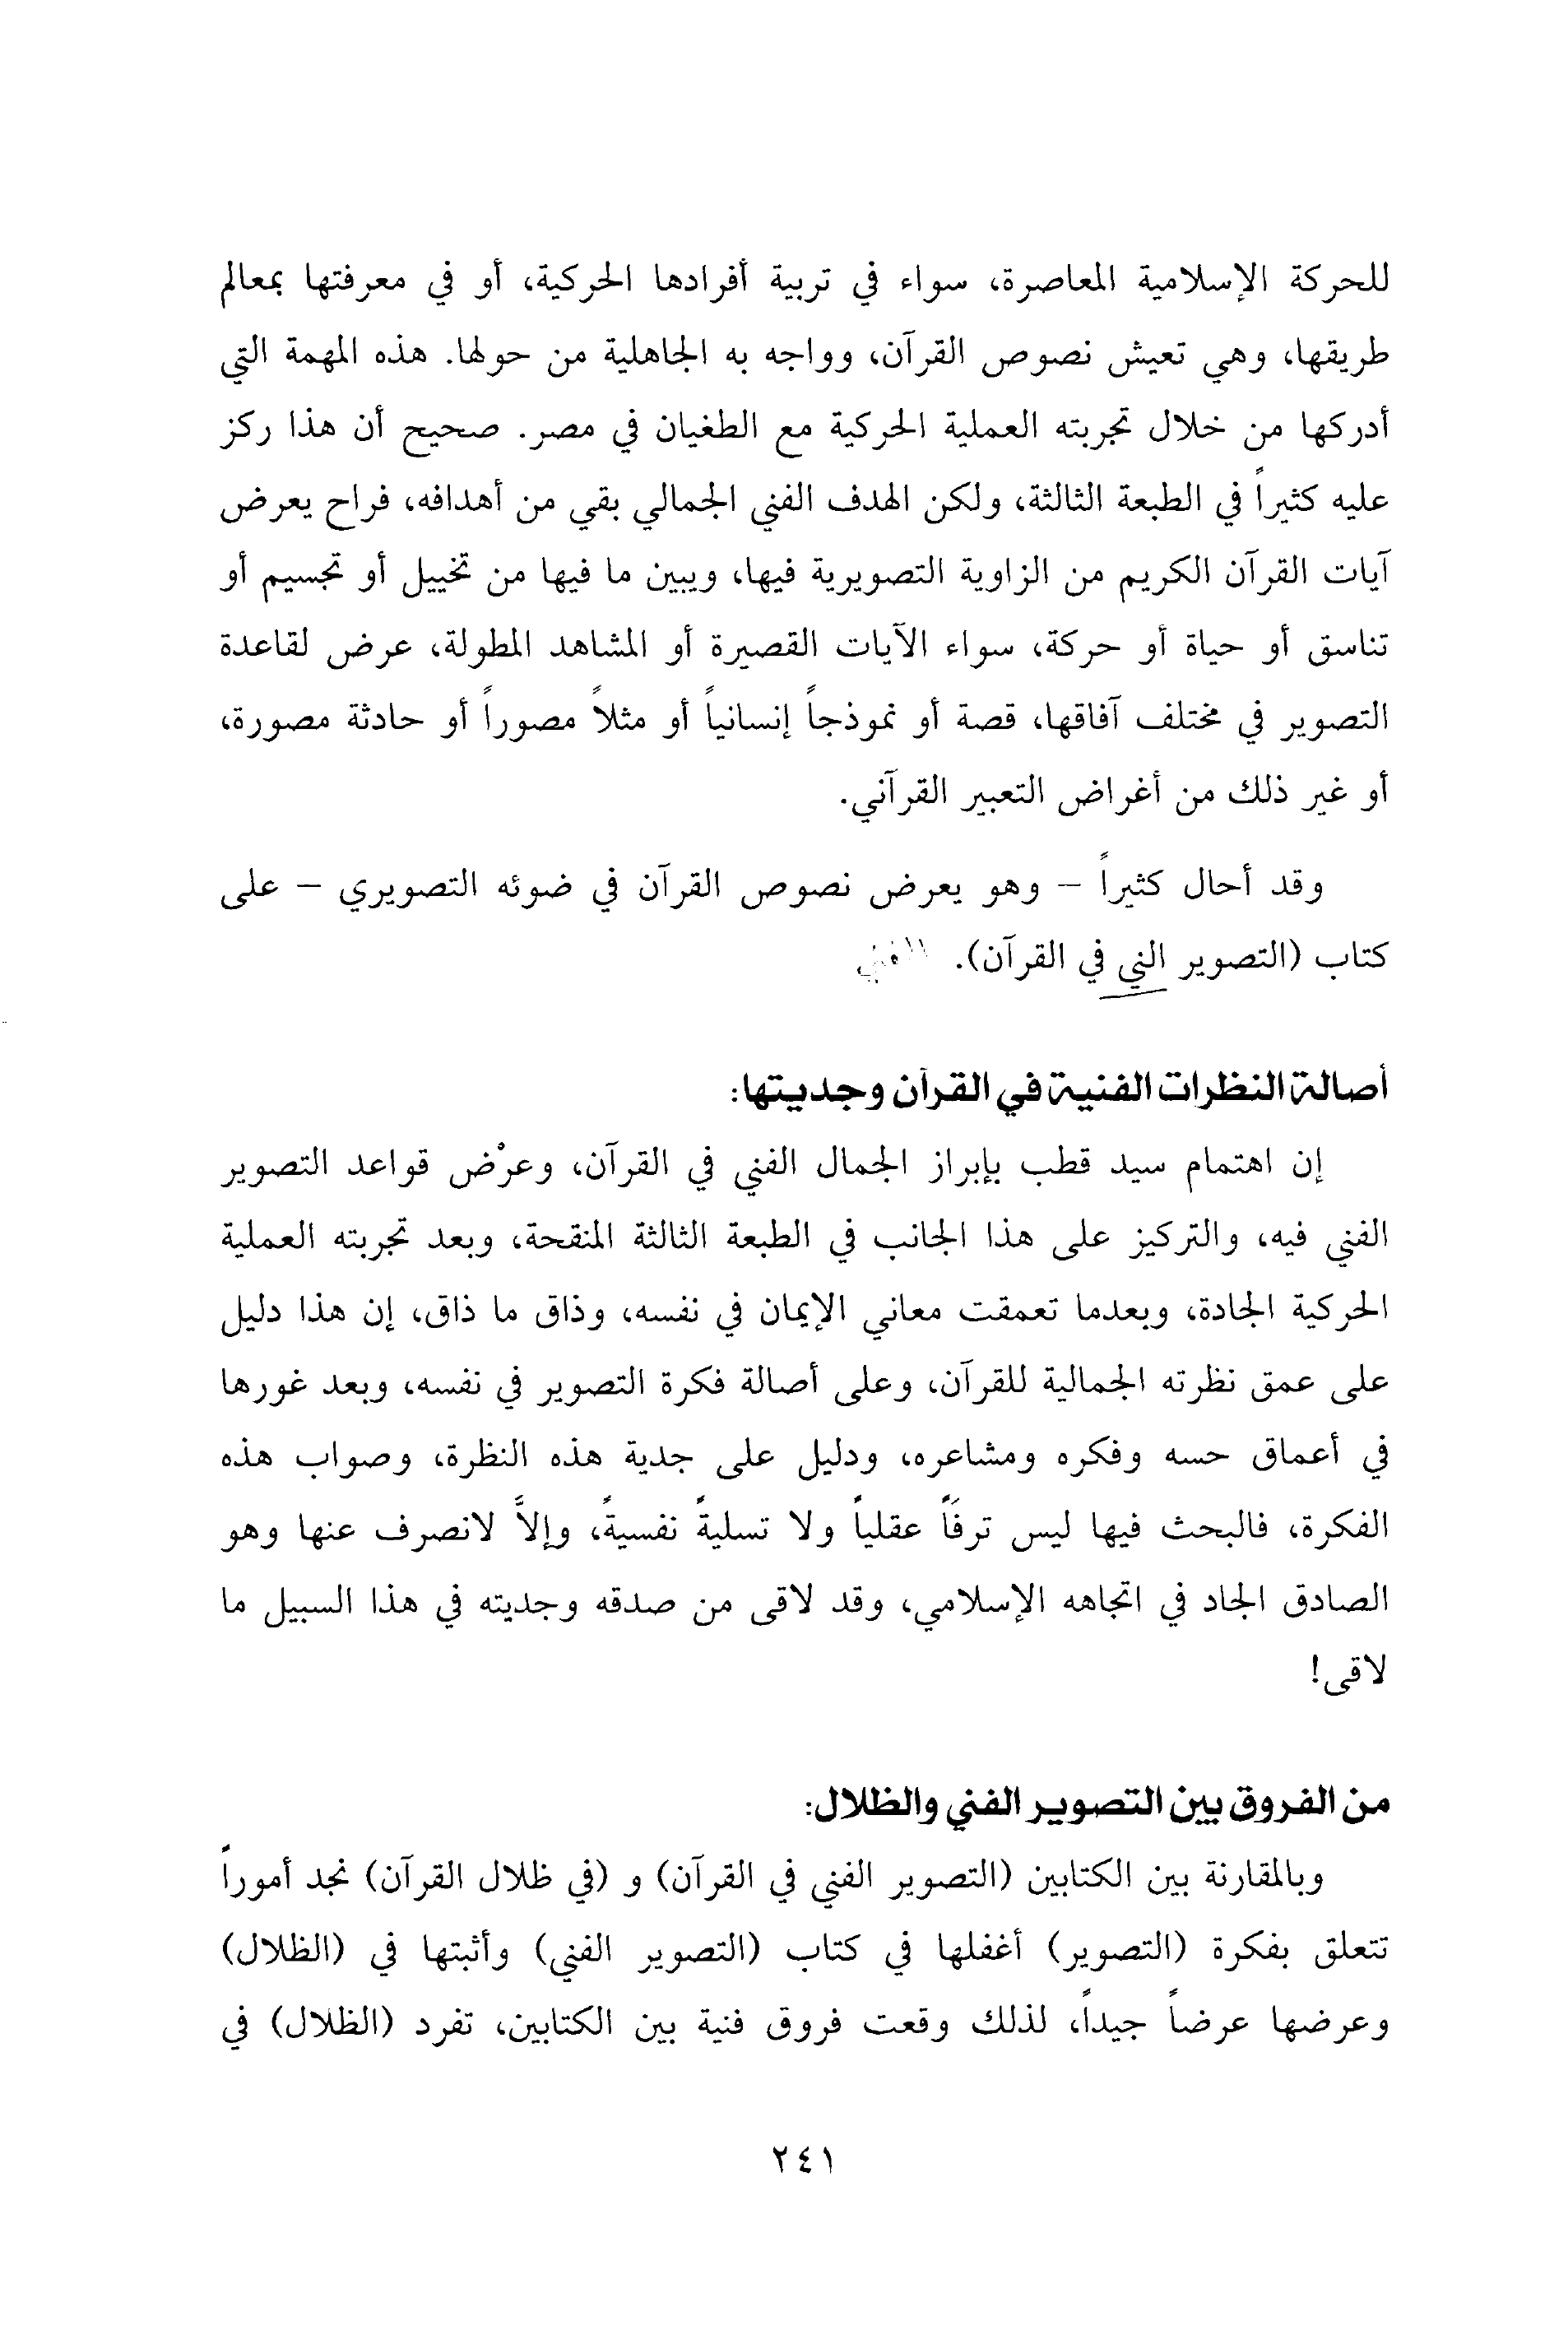 للحركة الإسلامية المعاصرة، سواء في تربية أفرادها الحركية، أو في معرفتها بمعالم
طريقها، وهي تعيش نصوص القرآن، وواجه به الجاهلية من حولها. هذه المهمة التي
أدركها من خلال تجربته العملية الحركية مع الطغيان في مصر. صحيح أن هذا ركز
عليه كثيراً في الطبعة الثالثة، ولكن الهدف الفني الجمالي بقي من أهدافه، فراح يعرض
آيات القرآن الكريم من الزاوية التصويرية فيها، ويبين ما فيها من تخييل أو تجسيم أو
تناسق أو حياة أو حركة، سواء الآيات القصيرة أو المشاهد المطولة، عرض لقاعدة
التصوير في مختلف آفاقها، قصة أو نموذجاً إنسانياً أو مثلاً مصوراً أو حادثة مصورة،
أو غير ذلك من أغراض التعبير القرآني.
وقد أحال كثيراً – وهو يعرض نصوص القرآن في ضوئه التصويري – على
كتاب (التصوير الني في القرآن). الفني
أصالة النظرات الفنية في القرآن وجديتها:
إن اهتمام سيد قطب بإبراز الجمال الفني في القرآن، وعرْض قواعد التصوير
الفني فيه، والتركيز على هذا الجانب في الطبعة الثالثة المنقحة، وبعد تجربته العملية
الحركية الجادة، وبعدما تعمقت معاني الإيمان في نفسه، وذاق ما ذاق، إن هذا دليل
على عمق نظرته الجمالية للقرآن، وعلى أصالة فكرة التصوير في نفسه، وبعد غورها
في أعماق حسه وفكره ومشاعره، ودليل على جدية هذه النظرة، وصواب هذه
الفكرة، فالبحث فيها ليس ترفَاً عقلياً ولا تسليةً نفسيةً، وإلاَّ لانصرف عنها وهو
الصادق الجاد في اتجاهه الإسلامي، وقد لاقى من صدقه وجديته في هذا السبيل ما
لاقى!
من الفروق بين التصوير الفني والظلال:
وبالمقارنة بين الكتابين (التصوير الفني في القرآن) و (في ظلال القرآن) نجد أموراً
تتعلق بفكرة (التصوير) أغفلها في كتاب (التصوير الفني) وأثبتها في (الظلال)
وعرضها عرضاً جيداً، لذلك وقعت فروق فنية بين الكتابين، تفرد (الظلال) في
٢٤١